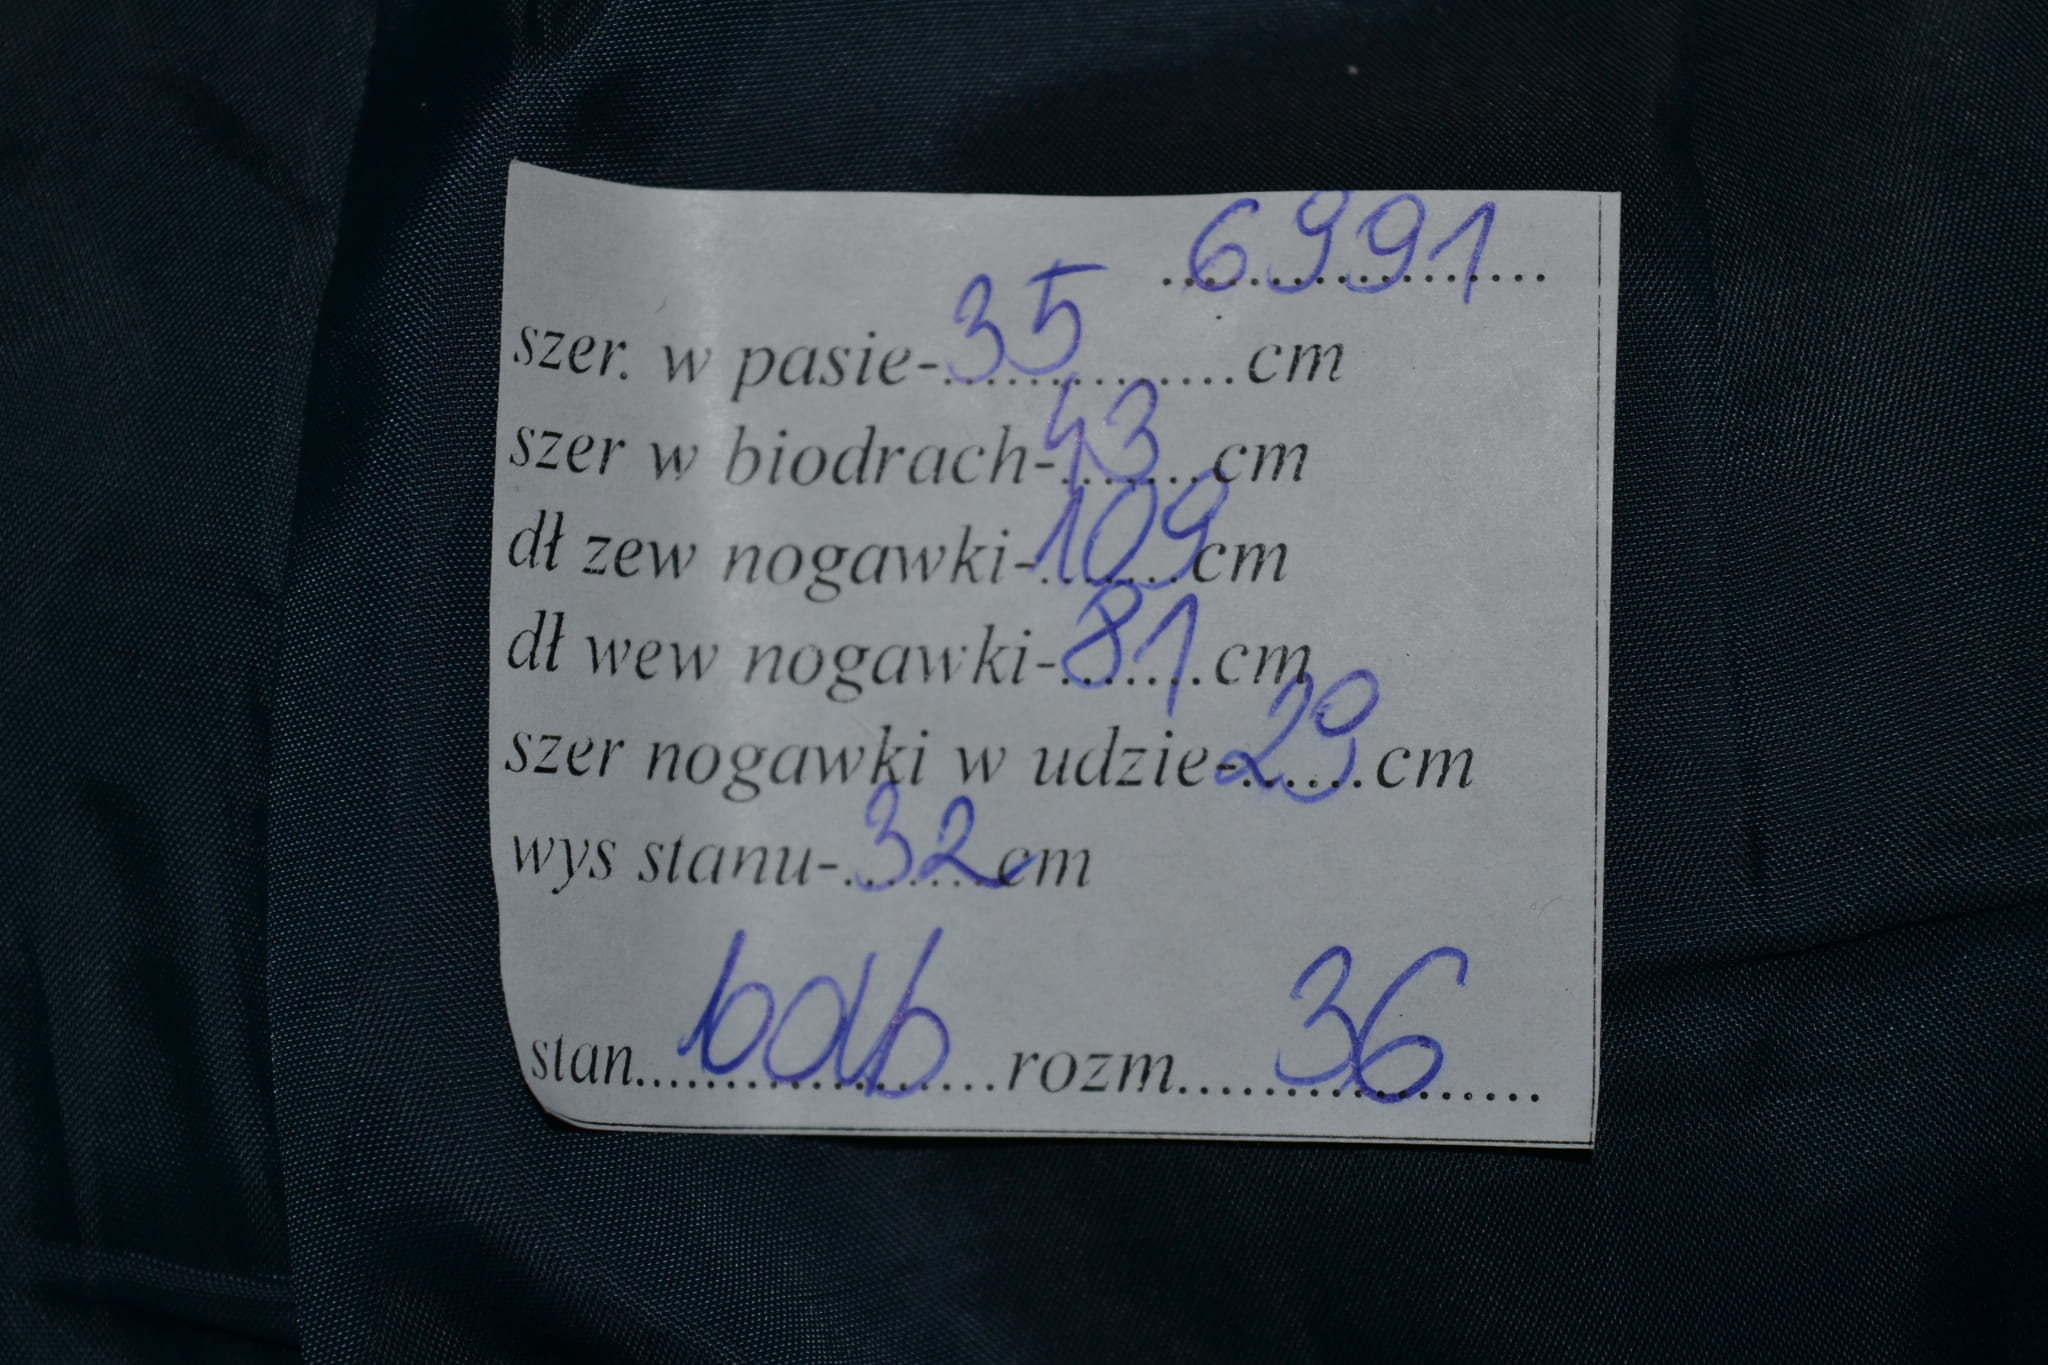 6991
szer. w pasie-35cm
szer w biodrach-43cm
dł zew nogawki-109cm
dł wew nogawki-81cm
szer nogawki w udzie-29cm
wys stanu-32cm
stan bdb rozm 36